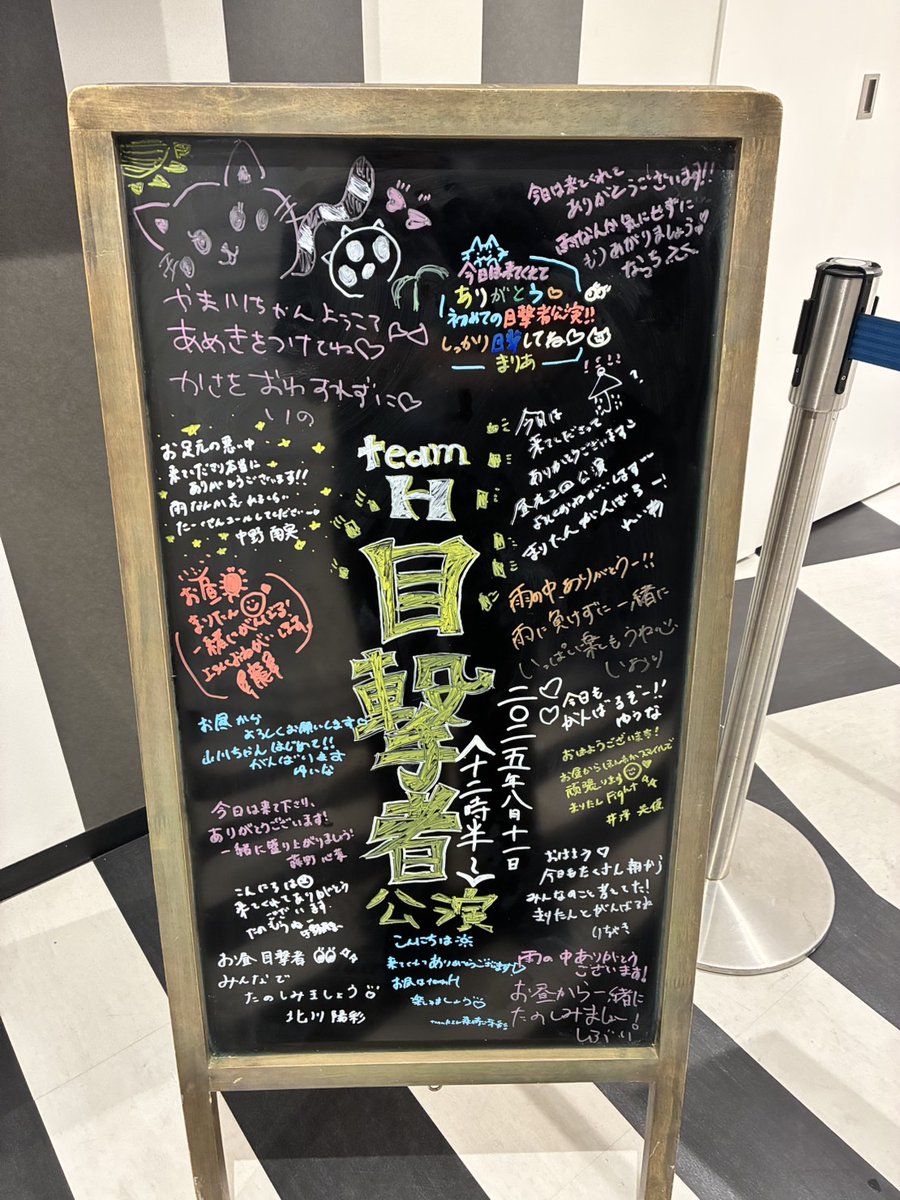 今日は来てくれて
ありがとうございます!!
雨なんか気にせずに
もりあがりましょう
なっち
今日は来てくれて
ありがとう
初めての目撃者公演!!
しっかり目撃してね
まりあ
やま川ちゃんようこそ
あめきをつけてね♡
かさをおわすれずに♡
いの
お足元の悪い中
来てくださり本当に
ありがとうございます!!
雨なんかかえれるくらい
中野 南実
今日は
来てくださって
ありがとうございます
まりたんがんばるー!
れいあ
team
H
目撃者
公演
二〇二五年八月十一日
〈十二時半〜〉
お昼
まりたん
一緒にがんばる!
よろしくおねがいします
雨の中ありがとうー!!
雨に負けずに一緒に
いっぱい楽しもうね♡
いおり
♡今日も
♡がんばるぞー!!
ゆうな
お昼から
よろしくお願いします
山川ちゃんはじめて!!
がんばります
ゆいな
おはようございます!
お昼からほんわかスマイルで
頑張ります
まりたん Fight
井澤 美優
今日は来て下さり、
ありがとうございます!
一緒に盛り上がりましょう!
おはよう♡
今日もたくさん朝から
みんなのこと考えてた!
まりたんとがんばるね
りちゃき
こんにちは
来てくれてありがとう
ございます
たのもうねー
お昼目撃者
みんなで
たのしみましょう
北川 陽彩
こんにちは
来てくれてありがとうございます
お昼はteamH
楽しみましょう
雨の中ありがとう
ございます!
お昼から一緒に
たのしみましょ〜!
しぶい!